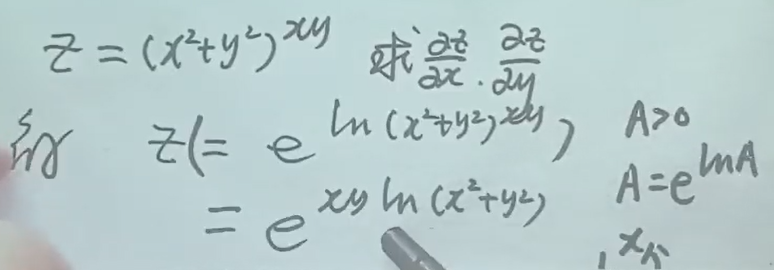 z = (x²+y²)^{xy} 求 ∂z/∂x . ∂z/∂y
解 z(= e^{ln(x²+y²)^{xy}}) A>0
= e^{xy ln(x²+y²)} A=e^{lnA}